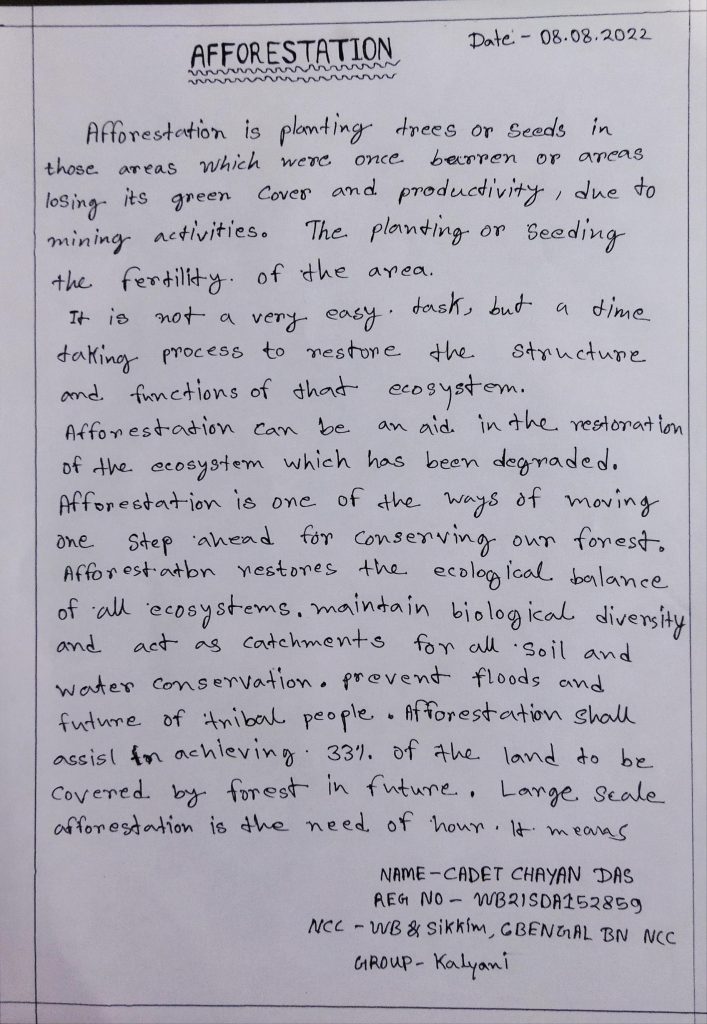 AFFORESTATION
Date - 08.08.2022
Afforestation is planting trees or seeds in
those areas which were once barren or areas
losing its green cover and productivity, due to
mining activities. The planting or seeding
the fertility. of the area.
It is not a very easy. task, but a time
taking process to restore the structure
and functions of that ecosystem.
Afforestation can be an aid in the restoration
of the ecosystem which has been degraded.
Afforestation is one of the ways of moving
one step ahead for conserving our forest.
Afforestation restores the ecological balance
of all ecosystems. maintain biological diversity
and act as catchments for all soil and
water conservation. prevent floods and
future of tribal people. Afforestation shall
assist in achieving. 33% of the land to be
covered by forest in future. Large scale
afforestation is the need of hour. It means
NAME - CADET CHAYAN DAS
REG NO - WB21SDA152859
NCC - WB & Sikkim, 6BENGAL BN NCC
GROUP - Kalyani